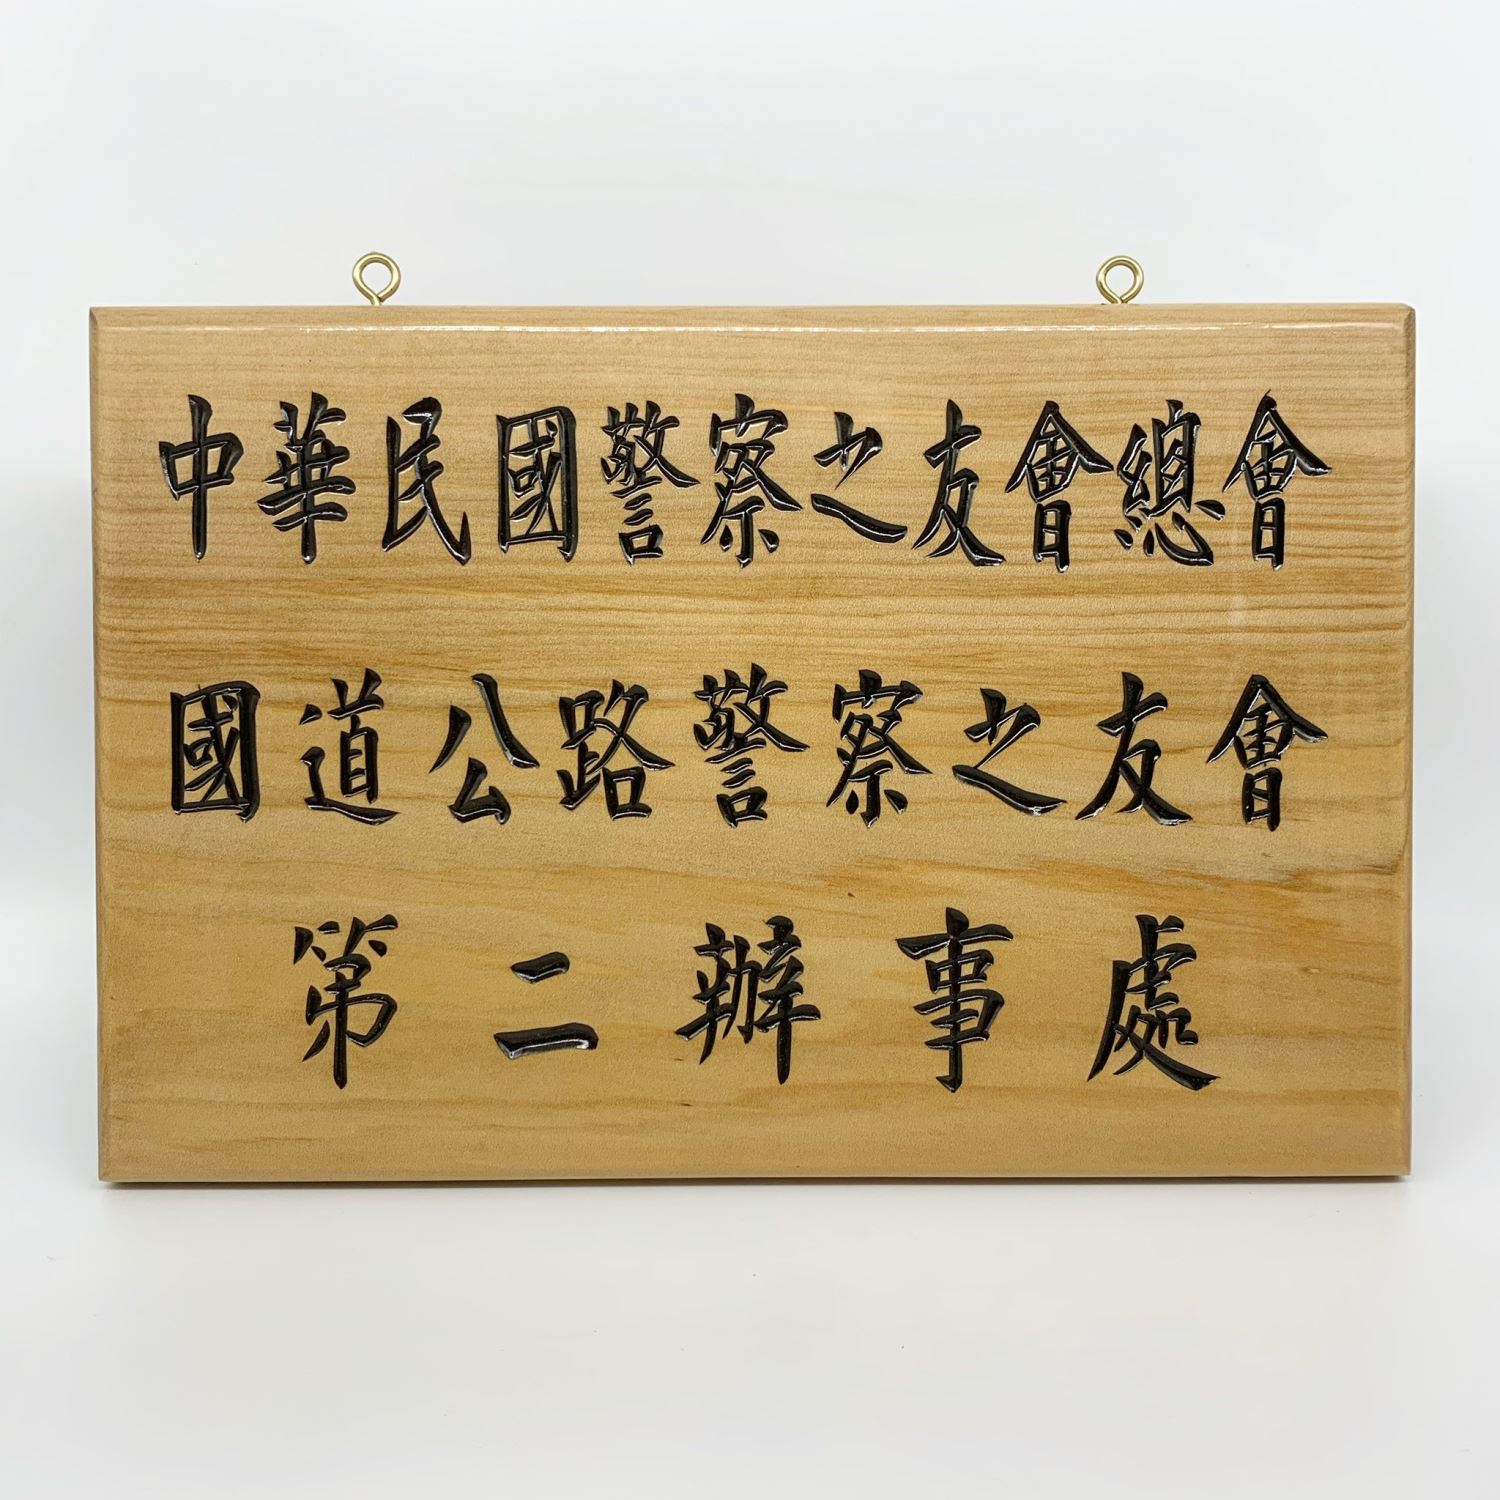 中華民國警察之友會總會
國道公路警察之友會
第二辦事處